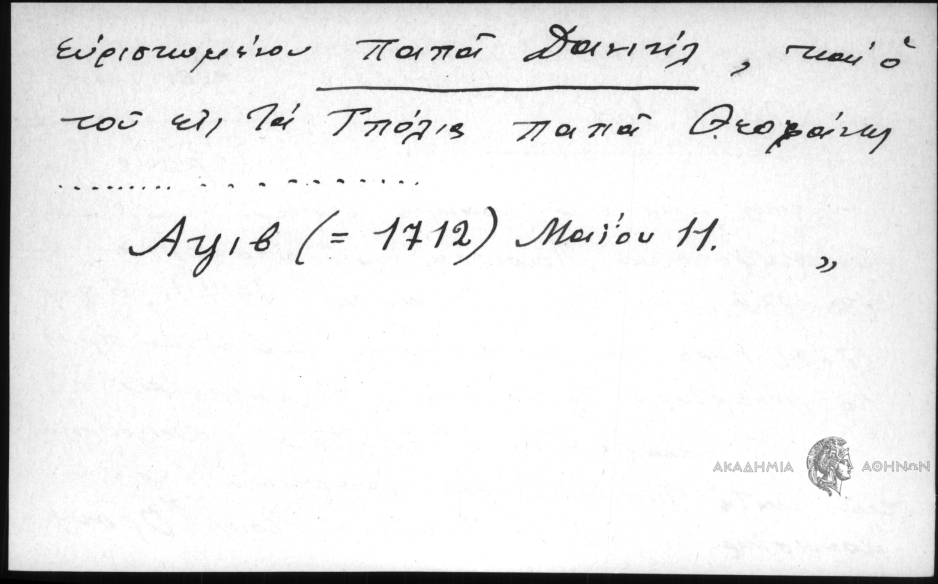 εὑρισκομένου παπᾶ Δανιήλ, καί ὁ
τοῦ εἰς τά παπᾶ Θεοφάνης
.................
Αψιβ (= 1712) Μαΐου 11. „
ΑΚΑΔΗΜΙΑ ΑΘΗΝΩΝ